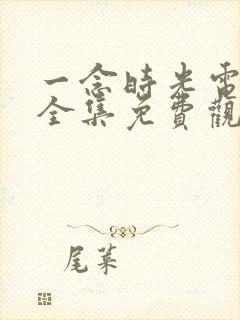 一念時光電
全集免費觀
尾葉